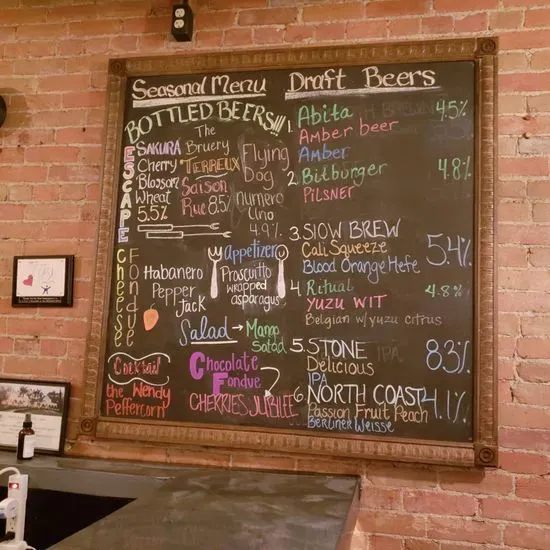 Seasonal Menu
BOTTLED BEERS!!!
ESCAPE
SAKURA
Cherry
Blossom
Wheat
5.5%
The
Bruery
"TERREUX
Saison
Rue 8.5%
Flying
Dog
numero
uno
4.9%
Cheese
Fondue
Habanero
Pepper
Jack
Appetizer
Proscuitto
wrapped
asparagus
Salad → Mango
Salad
Cocktail
the Wendy
Peppercorn
Chocolate
Fondue
CHERRIES JUBILEE
Draft Beers
1. Abita 4.5%
Amber beer
Amber
2. Bitburger 4.8%
PILSNER
3. SLOW BREW
Cali Squeeze 5.4%
Blood Orange Hefe
4. Ritual 4.8%
YUZU WIT
Belgian w/yuzu citrus
5. STONE IPA
Delicious 8.3%
IPA
6. NORTH COAST 4.1%
Passion Fruit Peach
Berliner Weisse